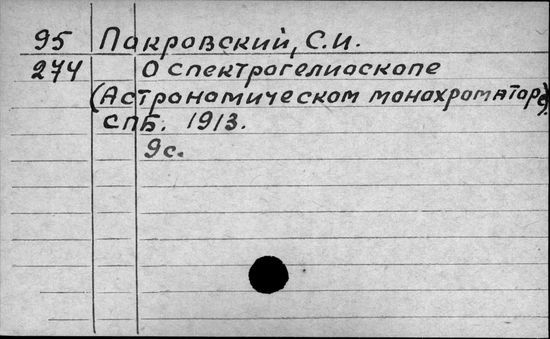 95 Покровский, С.И.
274 О спектрогелиоскопе
(Астрономическом монохроматоре).
СПБ. 1913.
9с.